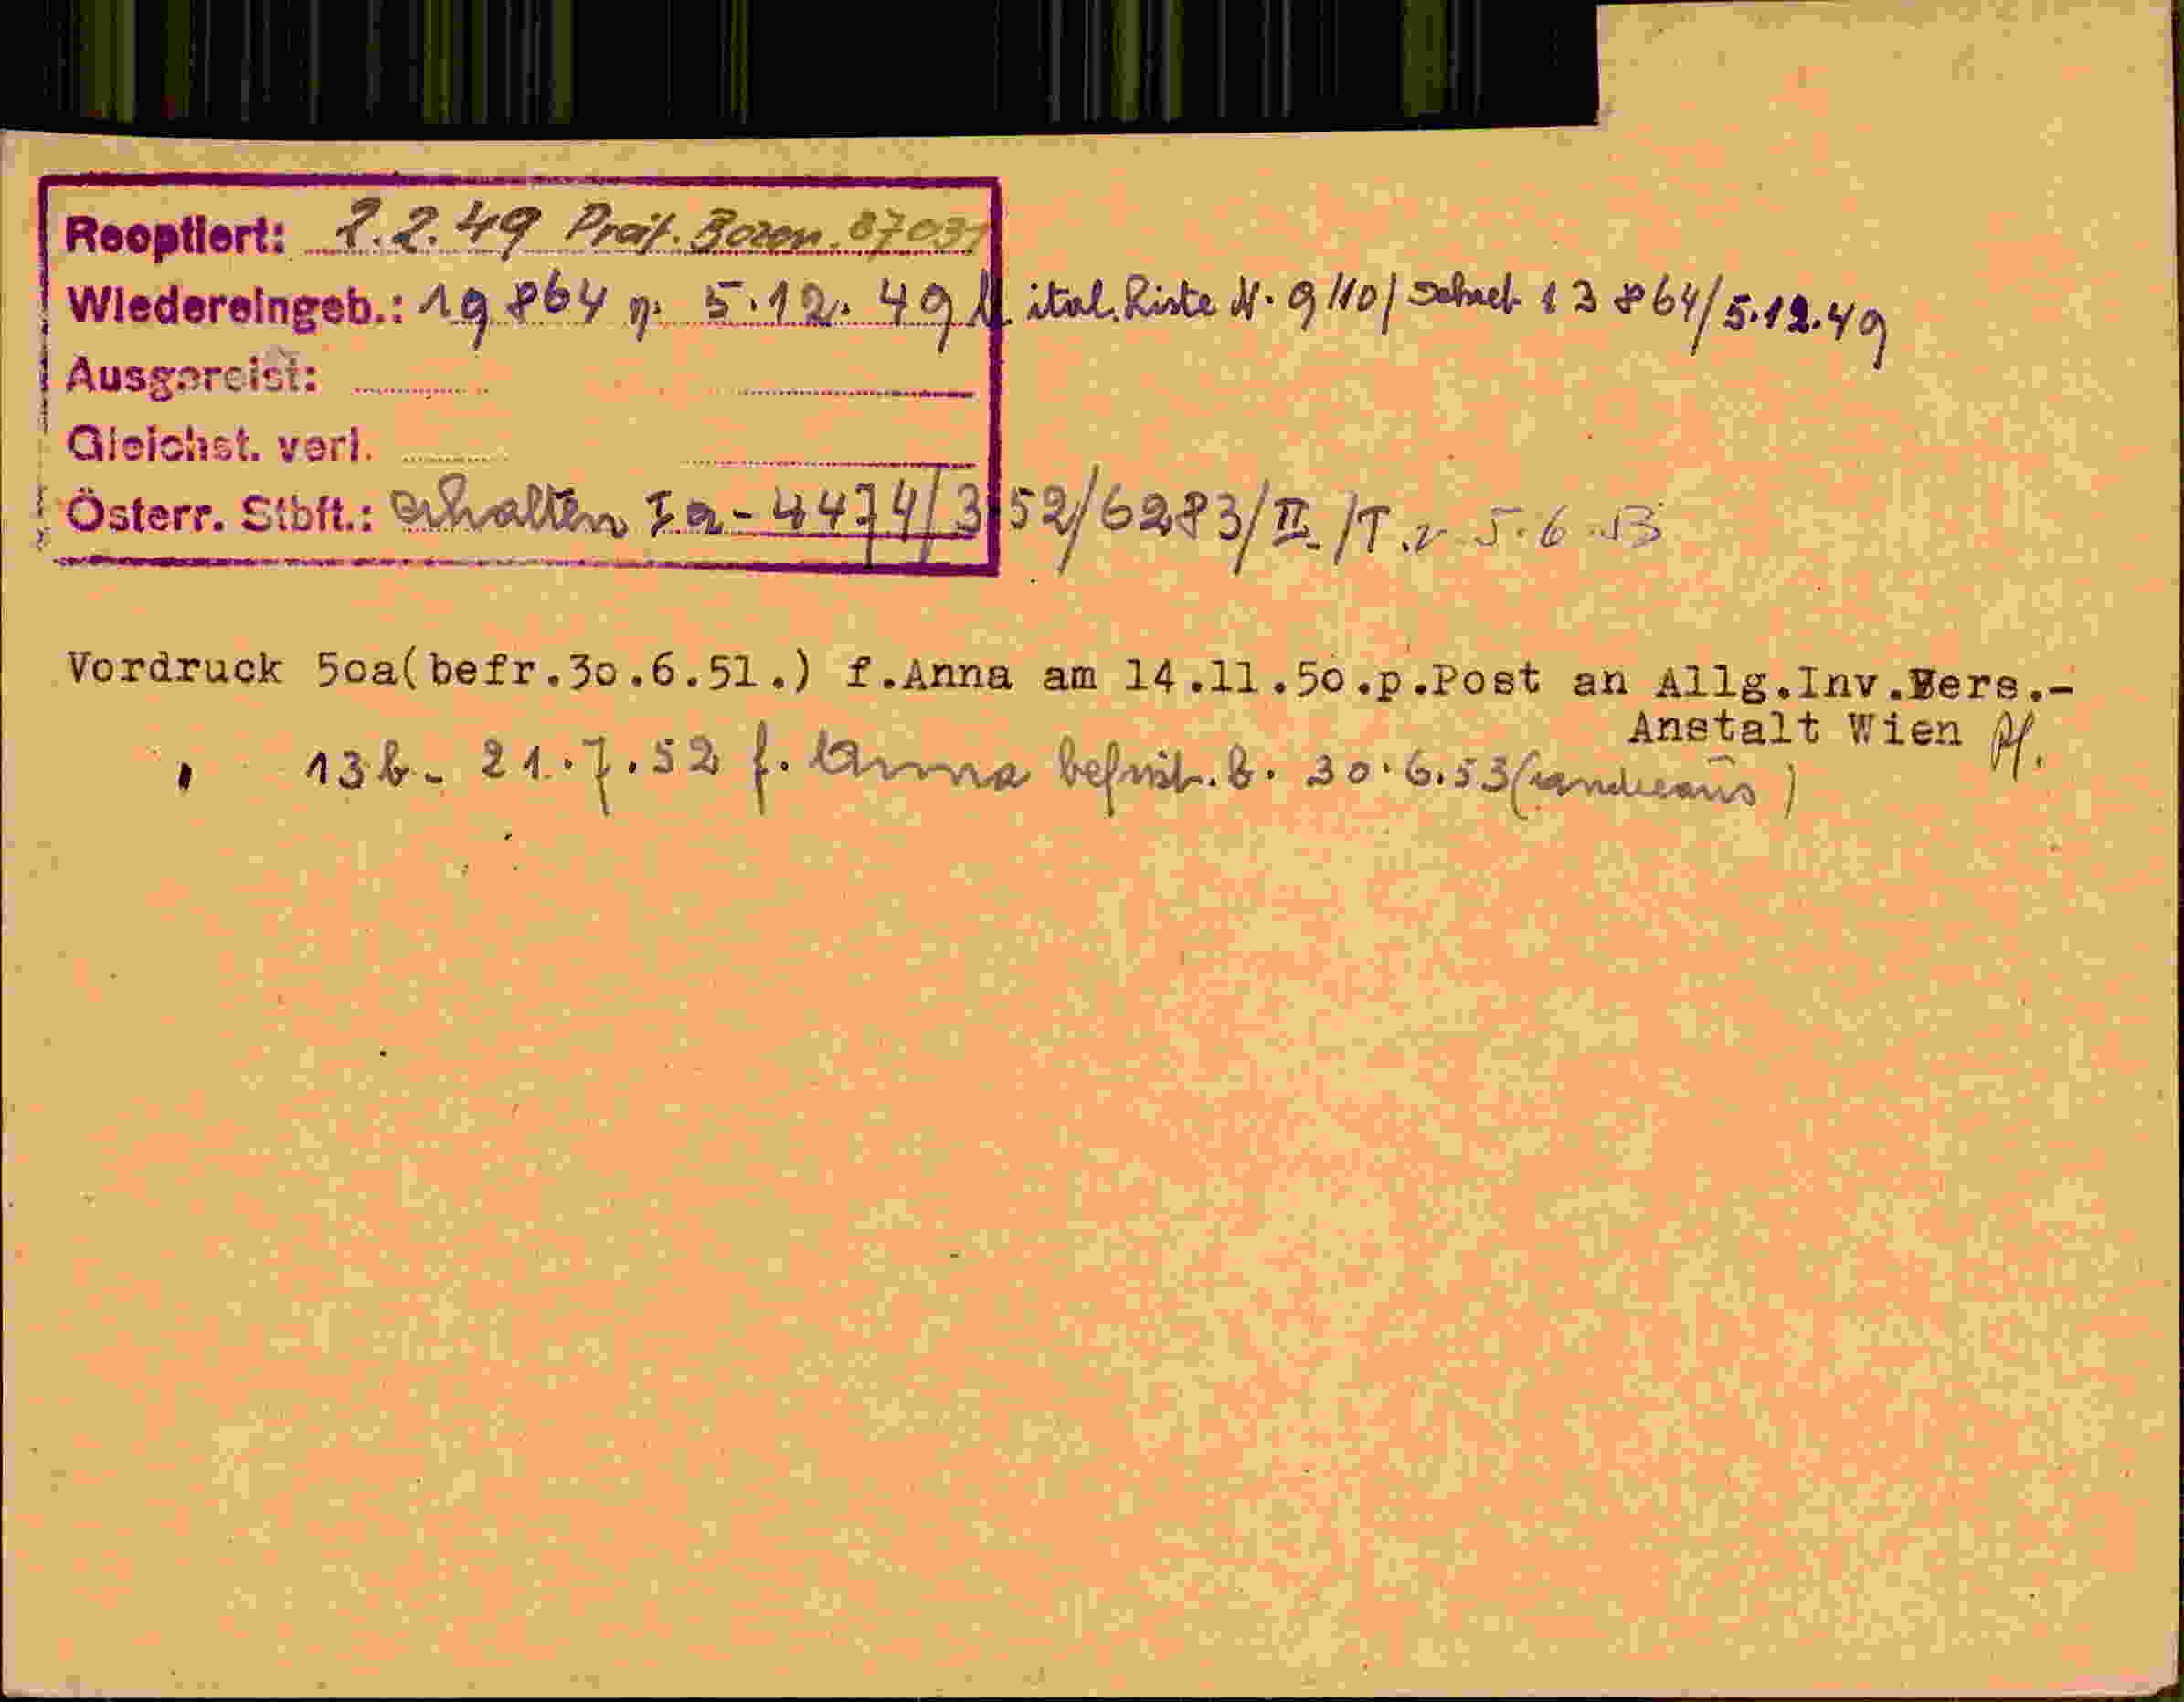 Reoptiert: 2.2.49 Präf. Bozen. 87031
Wiedereingeb.: 19864 v. 5.12.49 ital. Liste N. 9110/ 13864/5.12.49
Ausgereist:
Gleichst. verl.
Österr. Stbft.: erhalten Ia-4474/352/6283/II/T.v 5.6.53
Vordruck 5oa(befr.3o.6.51.) f.Anna am 14.11.5o.p.Post an Allg.Inv.Vers.-
Anstalt Wien
" 13b- 21.7.52 f. Anna befrist. b. 30.6.53